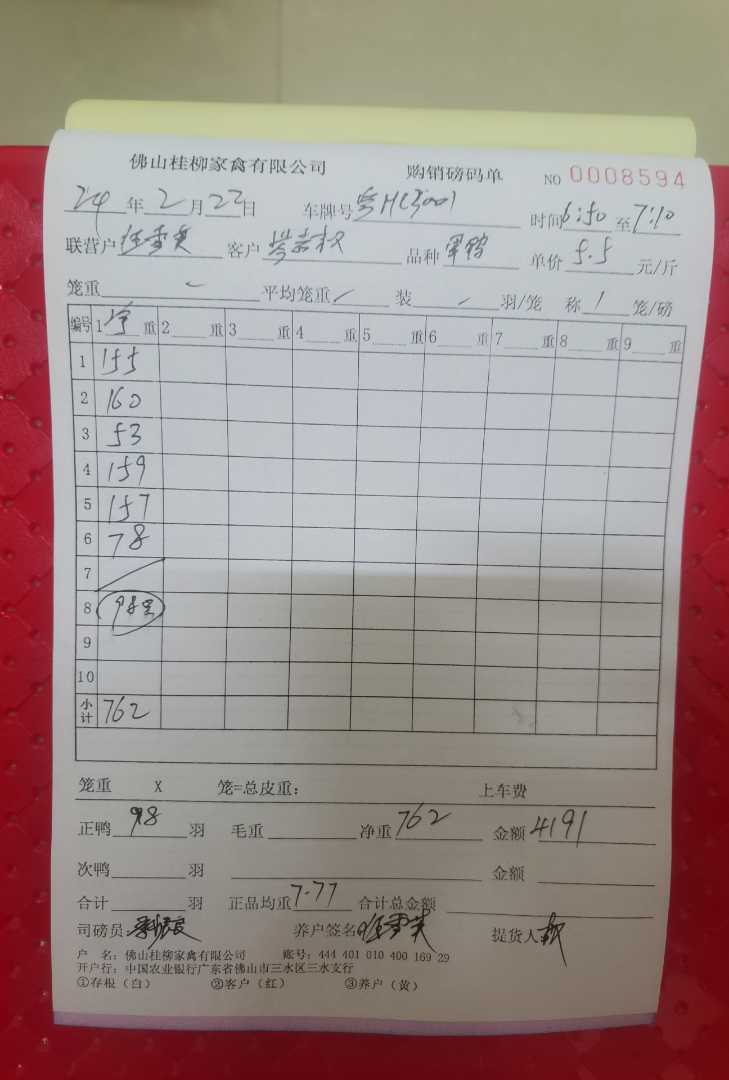 佛山桂柳家禽有限公司 购销磅码单 NO 0008594
24年2月22日 车牌号粤HC3001 时间6:50至7:10
联营户 客户 品种 单价5.5元/斤
笼重 - 平均笼重 / 装 - 羽/笼 称 1 笼/磅
编号 1 净 重 2 重 3 重 4 重 5 重 6 重 7 重 8 重 9 重
1 155
2 160
3 53
4 159
5 157
6 78
7
8 98只
9
10
小计 762
笼重 X 笼=总皮重: 上车费
正鸭 98 羽 毛重 净重 762 金额 4191
次鸭 羽 金额
合计 羽 正品均重 7.77 合计总金额
司磅员: 养户签名 提货人
户 名:佛山桂柳家禽有限公司 账号:444 401 010 400 169 29
开户行:中国农业银行广东省佛山市三水区三水支行
①存根(白) ②客户(红) ③养户(黄)